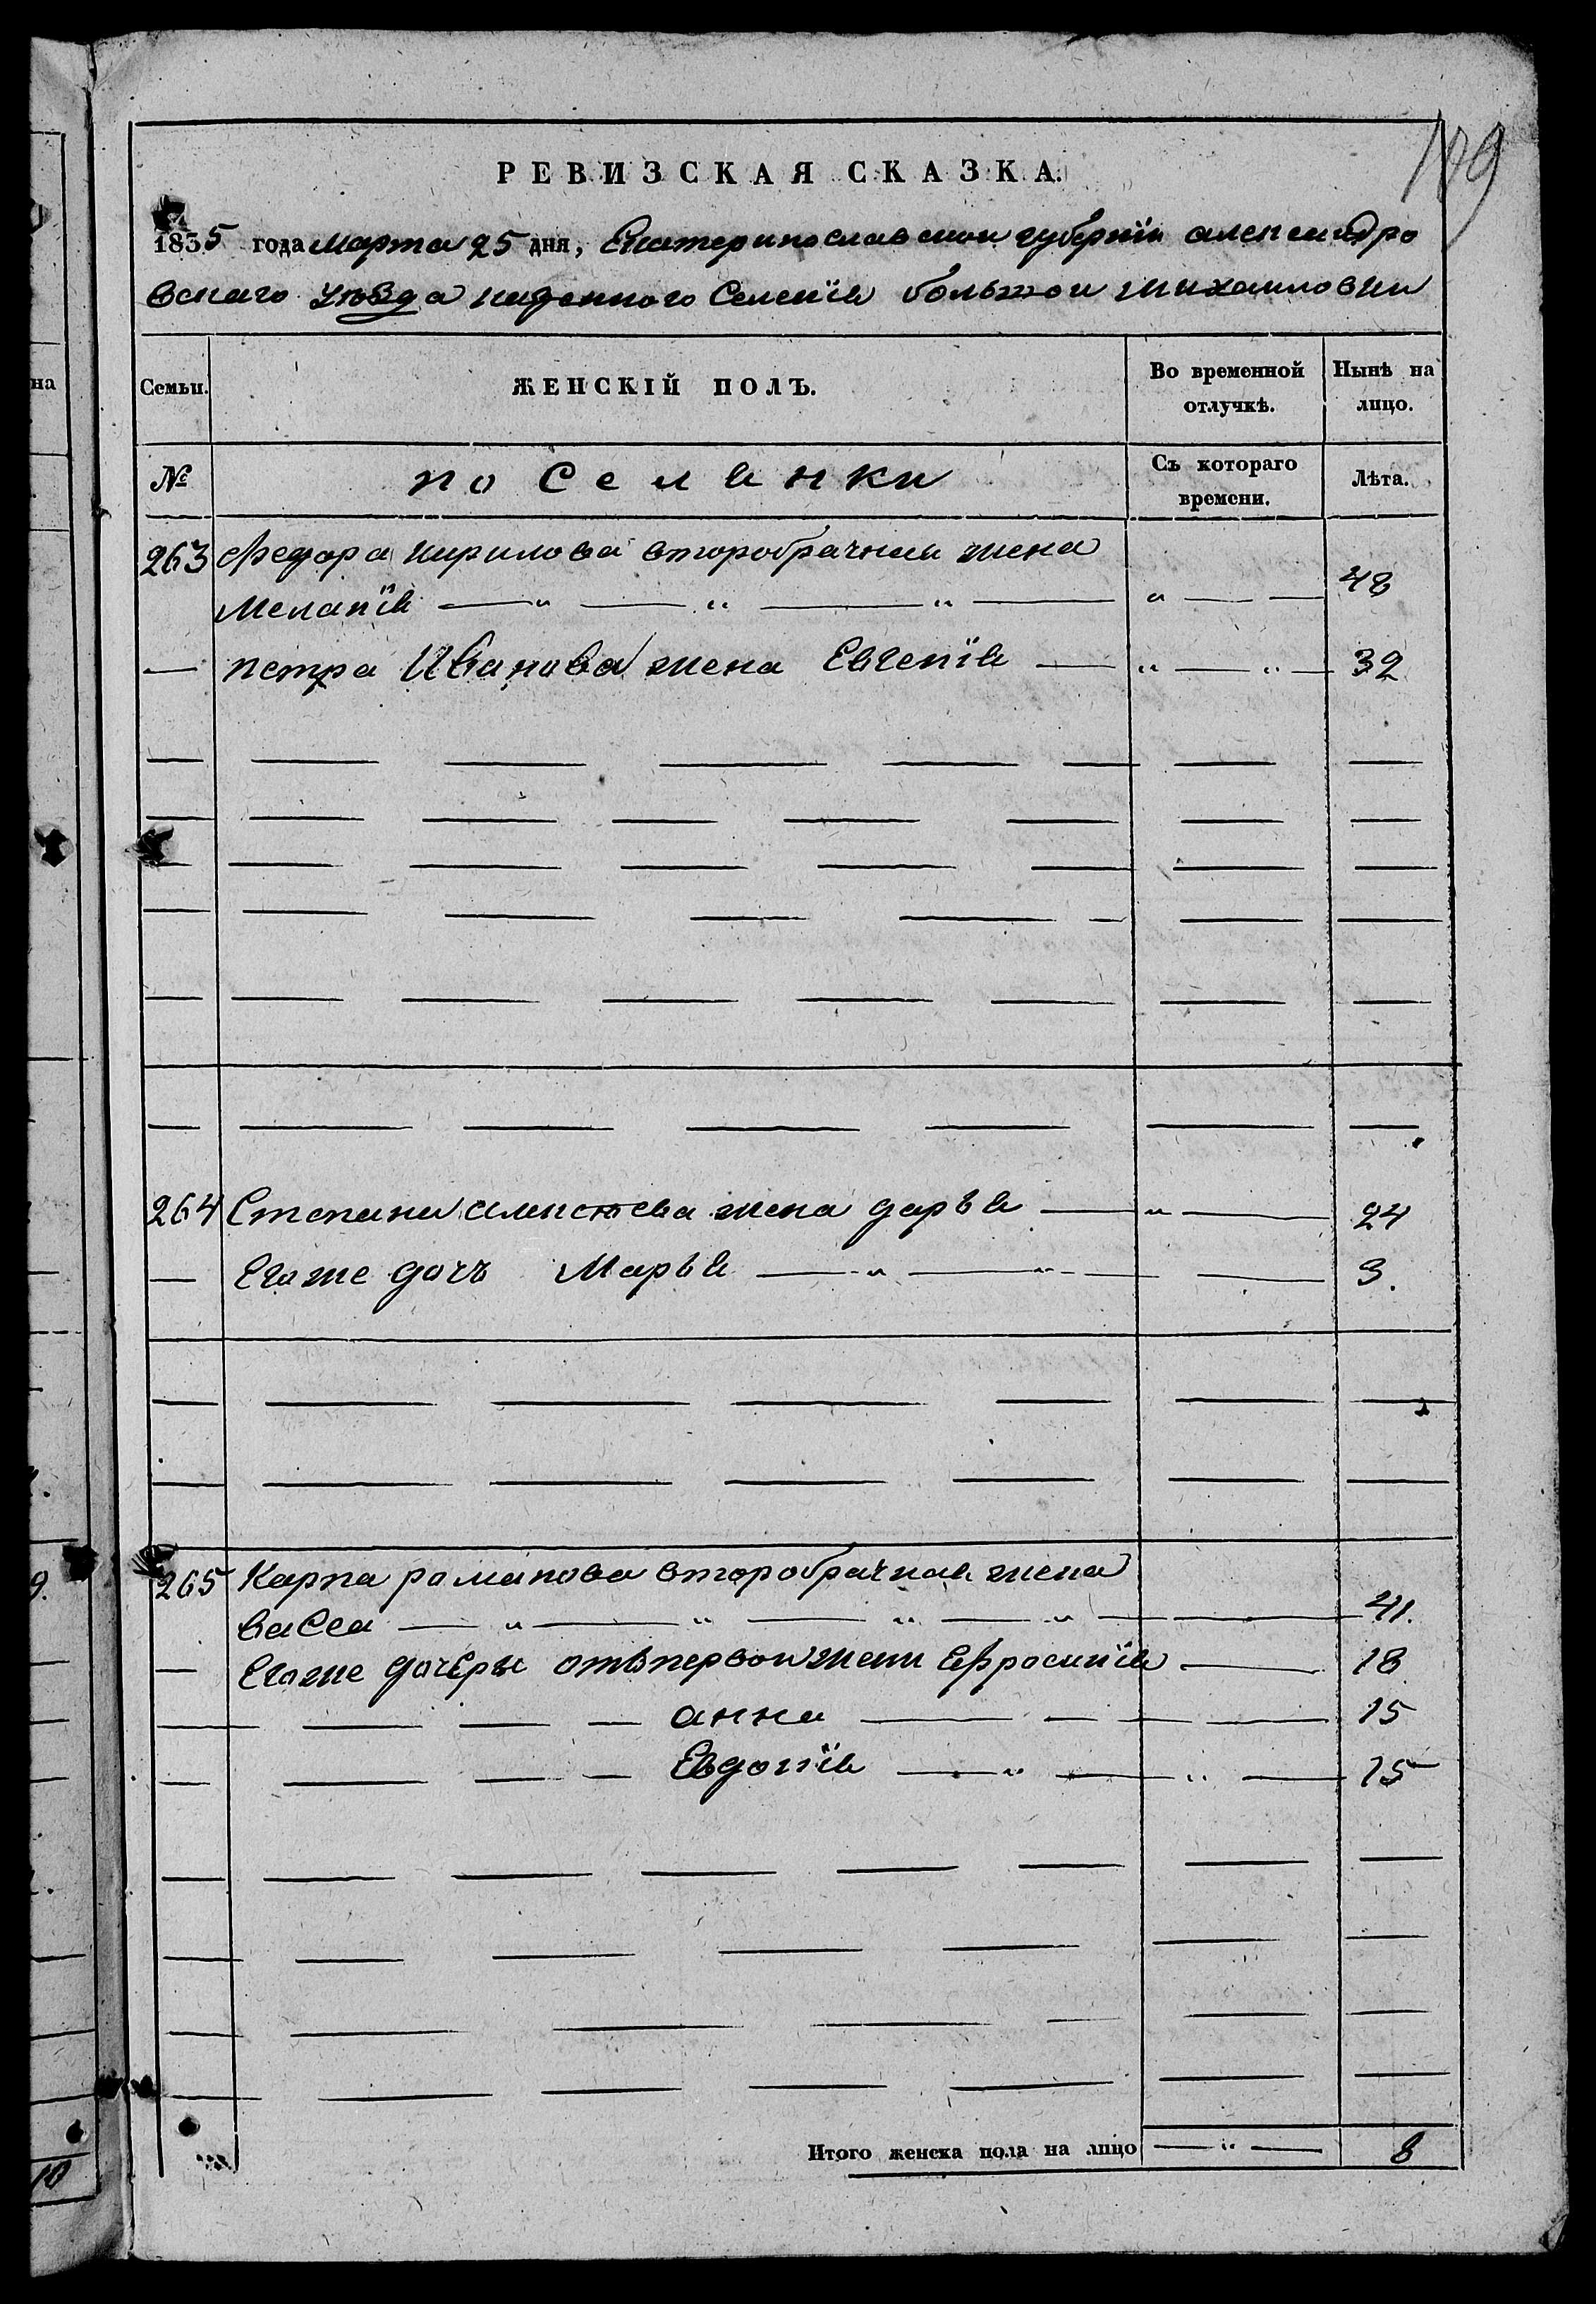 109
РЕВИЗСКАЯ СКАЗКА.
1835 года марта 25 дня, Екатеринославскои губернїи александро
вскаго уѣзда казенного Селенїя большои михаиловки
Семьи. ЖЕНСКІЙ ПОЛЪ. Во временной отлучкѣ. Нынѣ на лицо.
№ поселянки Съ котораго времени. Лѣта.
263 Федора кирилова второбрачная жена
Меланїя — " — " — " — " — 48
— петра Иванова жена Евгенїя — " — " — 32
264 Степана алексѣева жена дарья — " — 24
— Егоже дочь Марья — " — " — 3.
265 Карпа романова второбрачная жена
васса — " — " — " — " — 41.
— Егоже дочеры отъ первои жены Ефросинїя — 18
— — — — анна — — — — 15
— — — — Евдокїя — " — " — 15
Итого женска пола на лицо — " — 8
на
9.
10